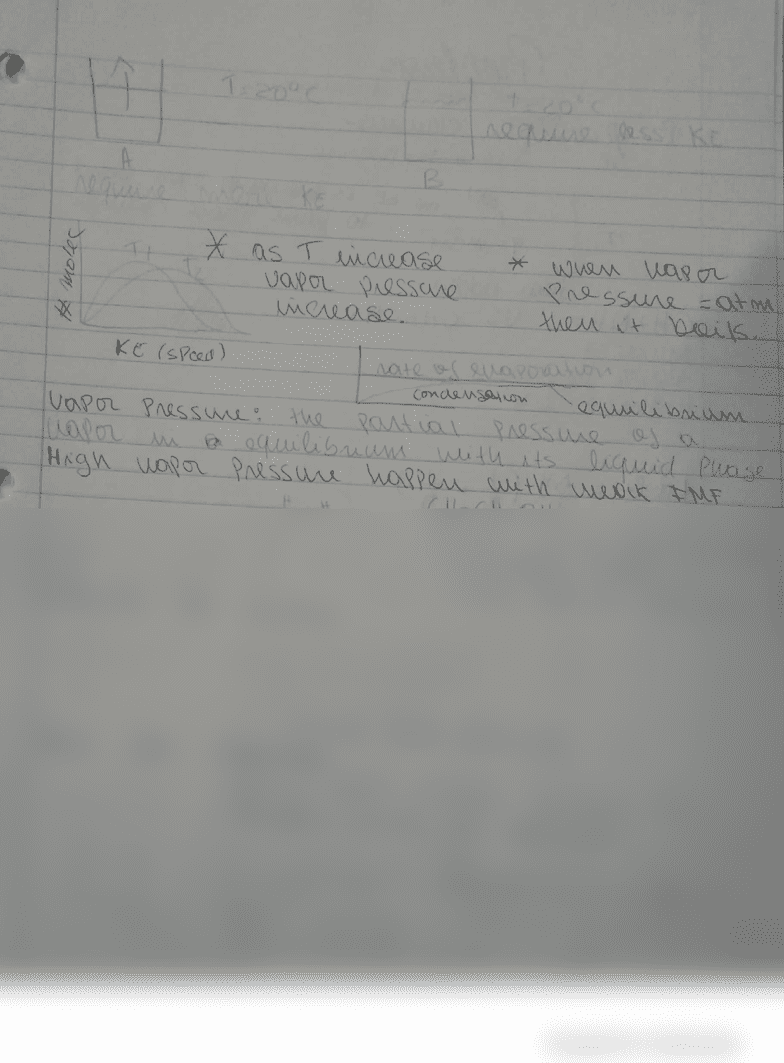 T=20°C
T=20°C
require less KE
A
B
require more KE
# molec
T1
T2
* as T increase
vapor pressure
increase.
* when vapor
pressure = atm
then it boils.
KE (speed)
rate of evaporation
condensation
equilibrium
Vapor Pressure: the partial pressure of a
vapor in a equilibrium with its liquid phase
High vapor pressure happen with weak IMF